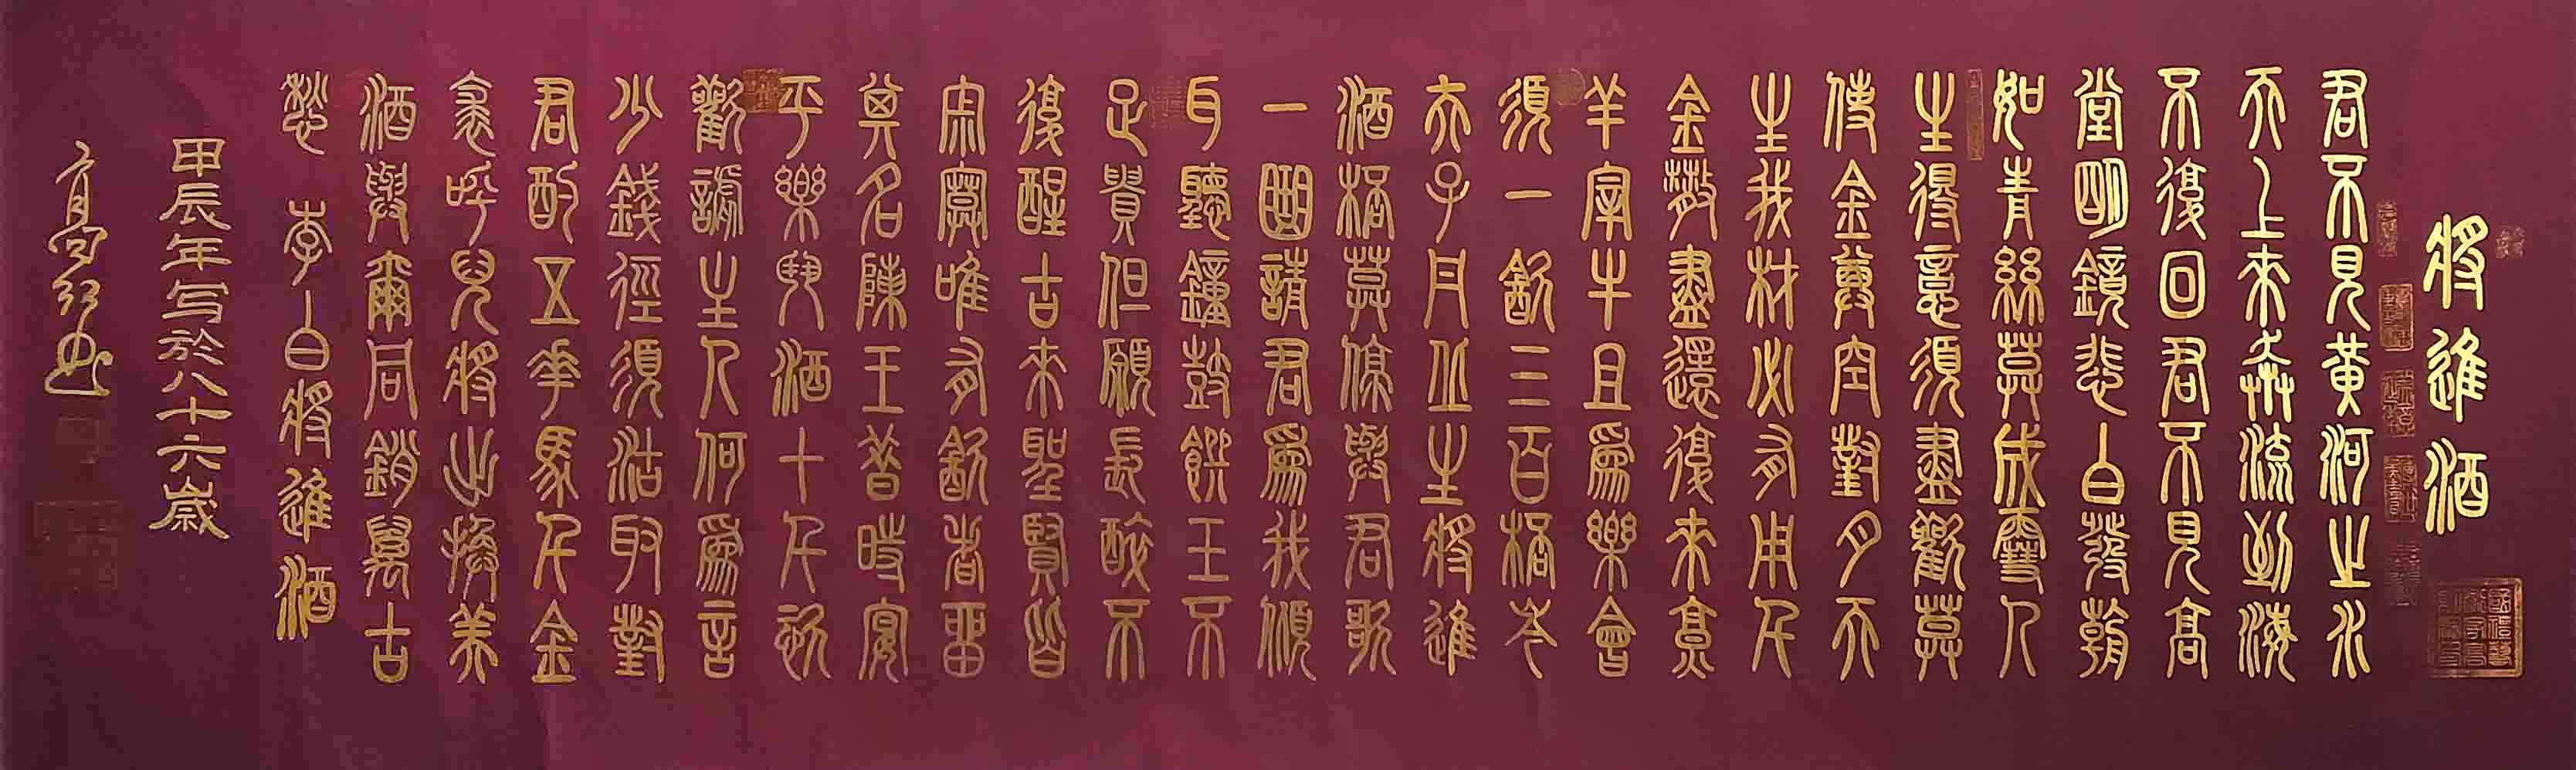 將進酒
君不見黃河之水
天上來奔流到海
不復回君不見高
堂明鏡悲白發朝
如青絲莫成雪人
生得意須盡歡莫
使金尊空對月天
生我材必有用千
金散盡還復來烹
羊宰牛且爲樂會
須一飲三百杯岑
夫子丹丘生將進
酒杯莫停與君歌
一曲請君爲我傾
耳聽鐘鼓饌玉不
足貴但願長醉不
復醒古來聖賢皆
寂寞唯有飲者留
其名陳王昔時宴
平樂斗酒十千恣
歡謔主人何爲言
少錢徑須沽取對
君酌五花馬千金
裘呼兒將出換美
酒與爾同銷萬古
愁 李白將進酒
甲辰年写於八十六歲